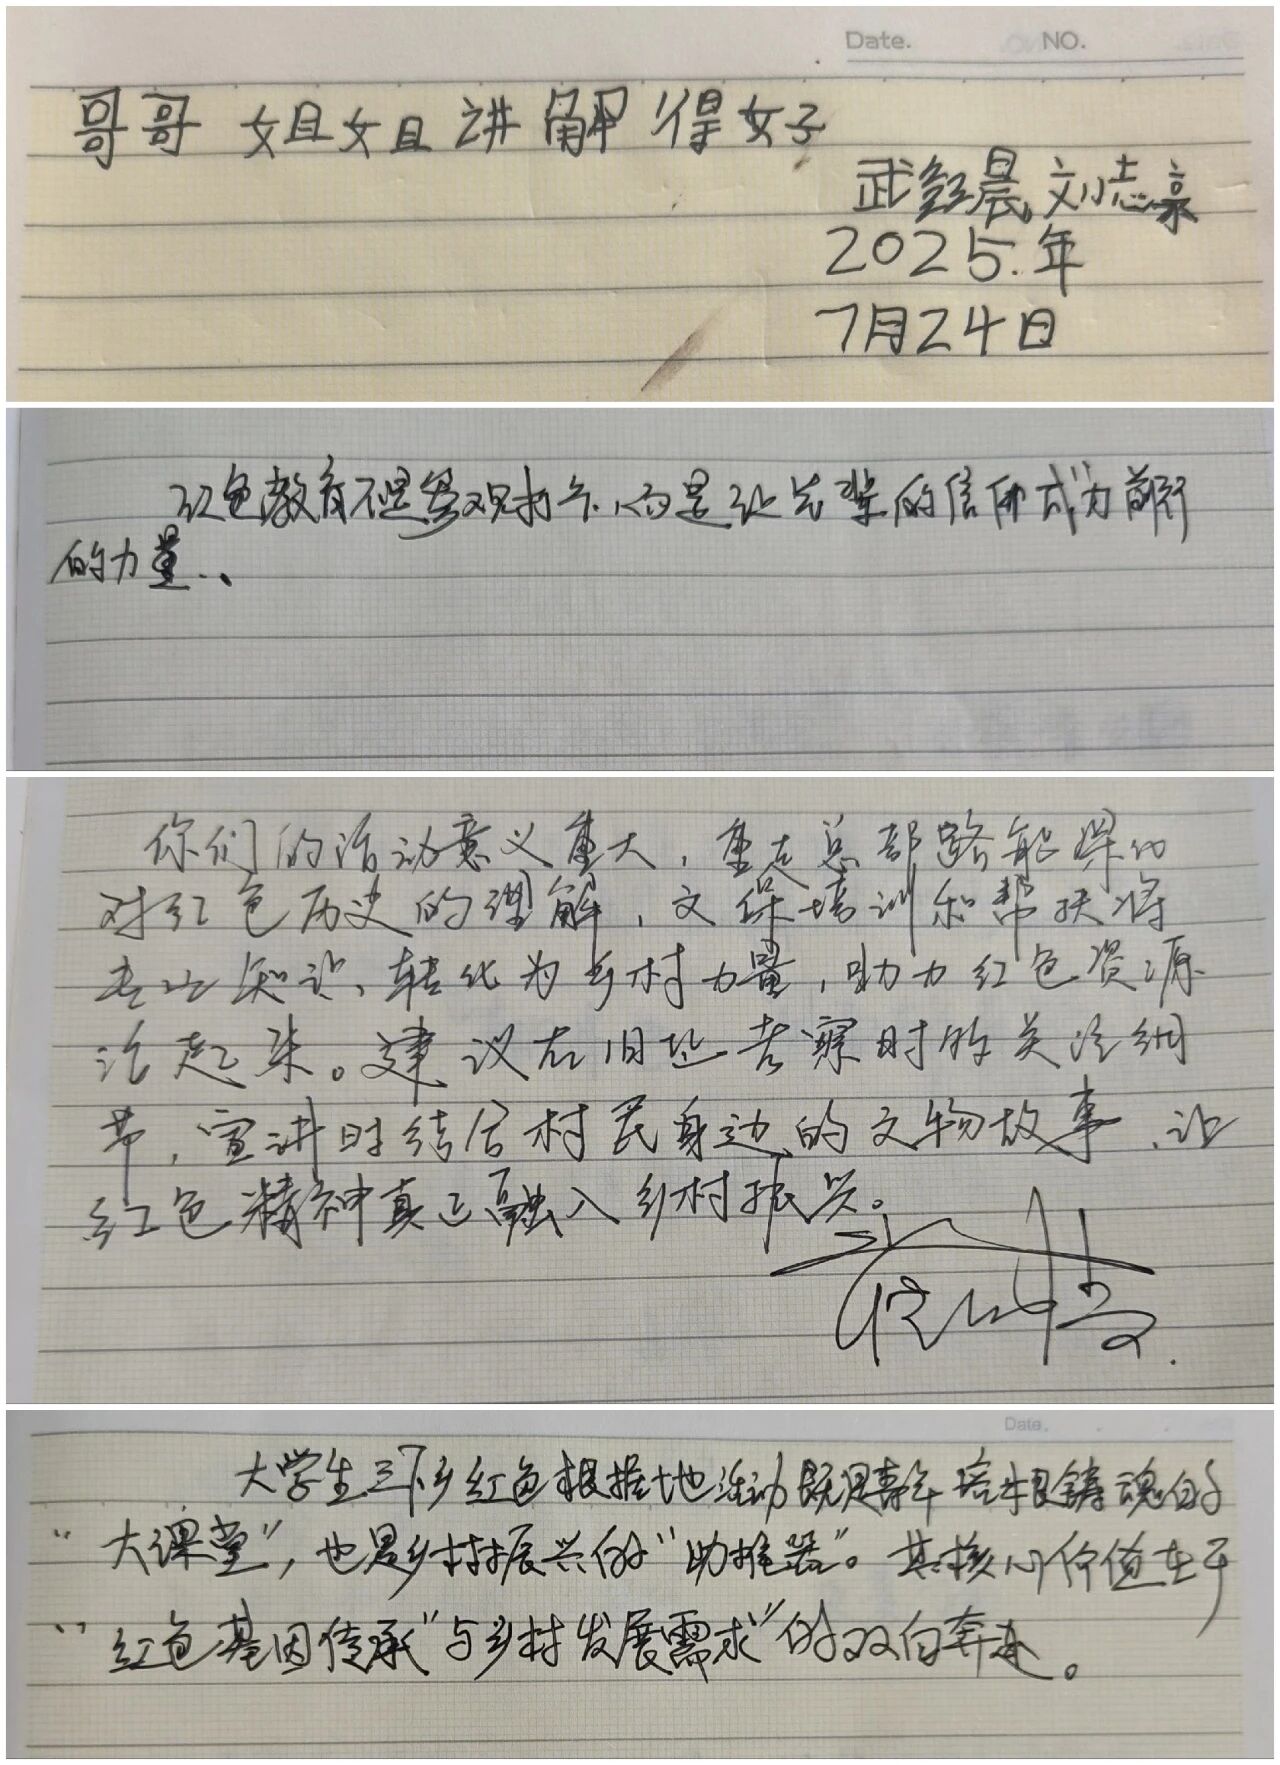 Date. NO.
哥哥 姐姐讲解得好
武 晨 刘志豪
2025.年
7月24日
红色教育不是参观打卡,而是让先辈的信仰成为前行
的力量..
你们的活动意义重大,重走总部路能深化
对红色历史的理解,文保培训和帮扶将
专业知识、转化为乡村力量,助力红色资源
活起来。建议在旧址考察时的关注细
节,宣讲时结合村民身边的文物故事,让
红色精神真正融入乡村振兴。
Date.
大学生三下乡红色根据地活动既是青年培根铸魂的
“大课堂”,也是乡村振兴的“助推器”。其核心价值在于
“红色基因传承”与乡村发展需求”的双向奔赴。